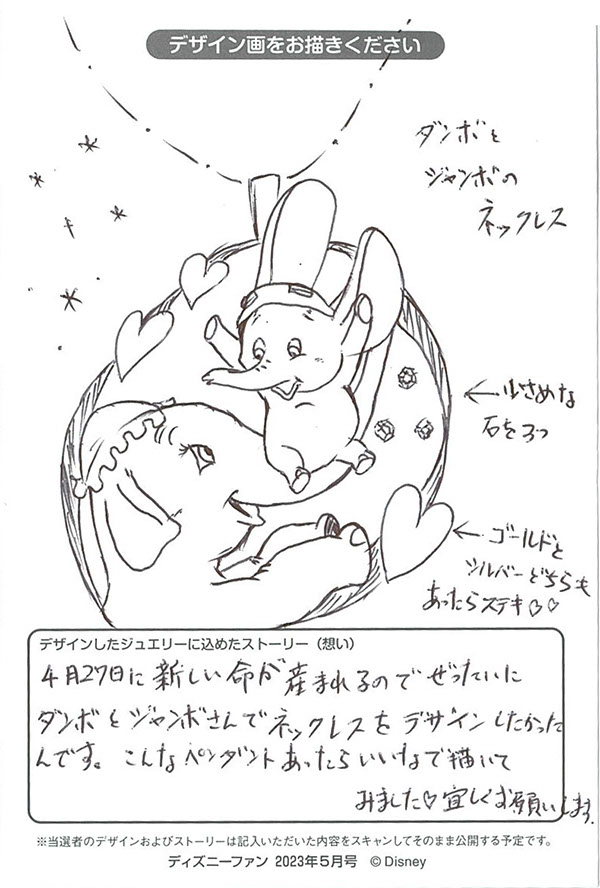 デザイン画をお描きください
ダンボと
ジャンボの
ネックレス
← 小さめな
石を3つ
← ゴールドと
シルバーどちらも
あったらステキ♡♡
デザインしたジュエリーに込めたストーリー（想い）
4月27日に新しい命が産まれるのでぜったいに
ダンボとジャンボさんでネックレスをデザインしたかった
んです。こんなペンダントあったらいいなで描いて
みました♡宜しくお願いします.
※当選者のデザインおよびストーリーは記入いただいた内容をスキャンしてそのまま公開する予定です。
ディズニーファン 2023年5月号 ©Disney